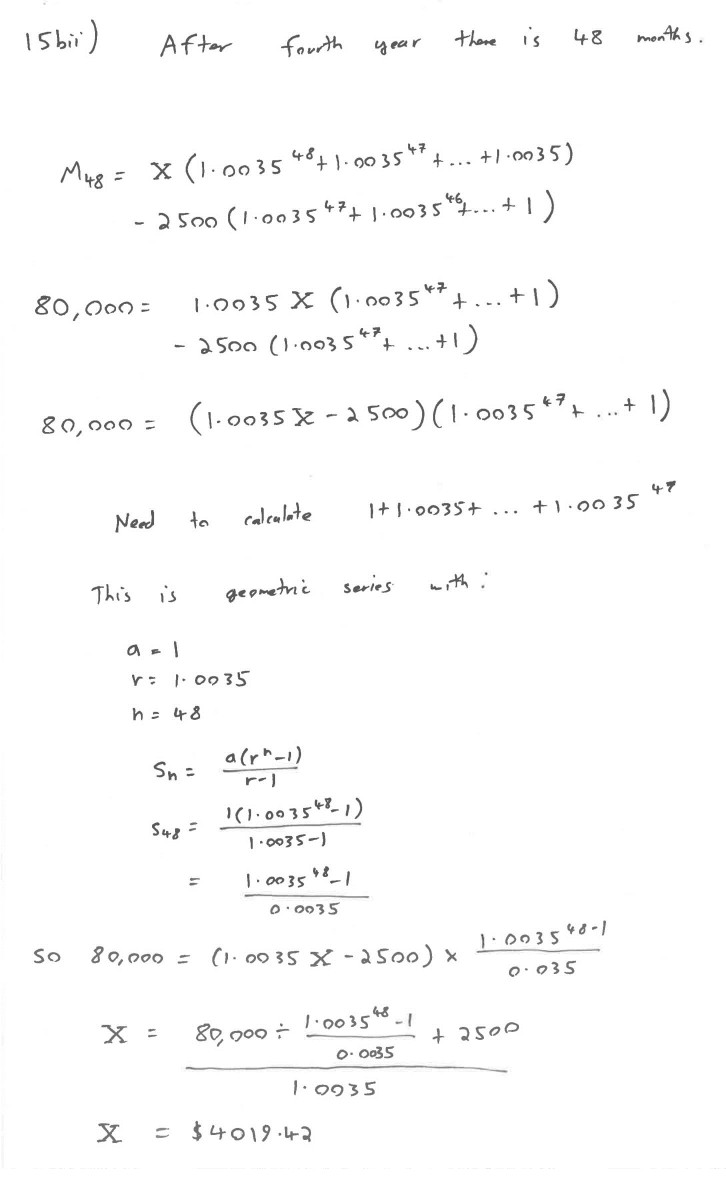 15bii) After fourth year there is 48 months.
M₄₈ = X (1.0035⁴⁸ + 1.0035⁴⁷ + ... + 1.0035)
- 2500 (1.0035⁴⁷ + 1.0035⁴⁶ + ... + 1)
80,000 = 1.0035 X (1.0035⁴⁷ + ... + 1)
- 2500 (1.0035⁴⁷ + ... + 1)
80,000 = (1.0035 X - 2500)(1.0035⁴⁷ + ... + 1)
Need to calculate 1 + 1.0035 + ... + 1.0035⁴⁷
This is geometric series with:
a = 1
r = 1.0035
n = 48
Sₙ = a(rⁿ-1) / r-1
S₄₈ = 1(1.0035⁴⁸-1) / 1.0035-1
= 1.0035⁴⁸-1 / 0.0035
So 80,000 = (1.0035 X - 2500) × 1.0035⁴⁸⁻¹ / 0.035
X = 80,000 ÷ 1.0035⁴⁸-1 / 0.0035 + 2500 / 1.0035
X = $4019.42